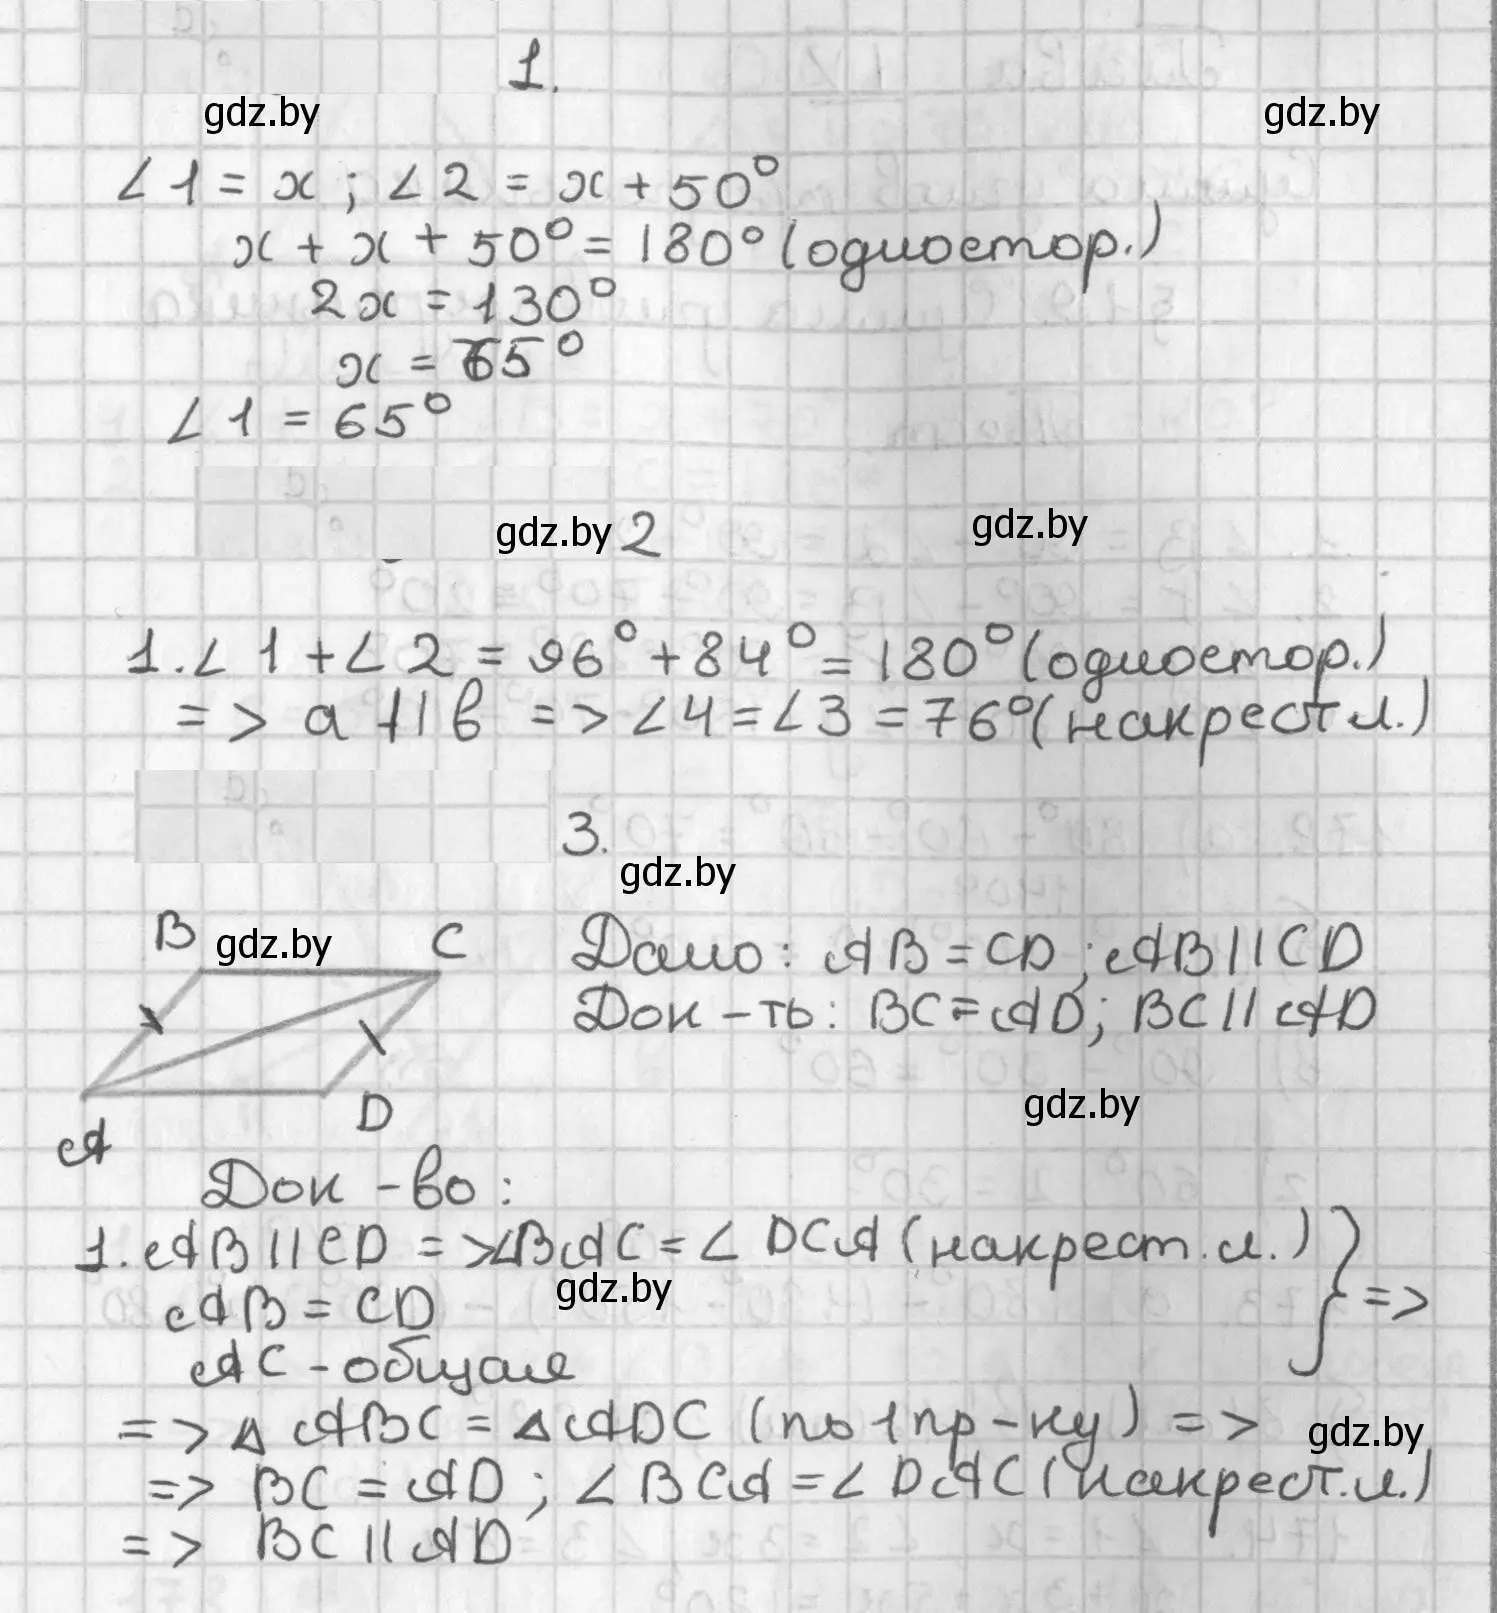 1.
gdz.by
gdz.by
∠1 = x ; ∠2 = x + 50°
x + x + 50° = 180° (одностор.)
2x = 130°
x = 65°
∠1 = 65°
gdz.by 2
gdz.by
1. ∠1 + ∠2 = 96° + 84° = 180° (одностор.)
=> a || b => ∠4 = ∠3 = 76° (накрест л.)
3.
gdz.by
B gdz.by C
Дано: AB = CD ; AB || CD
Док-ть: BC = AD; BC || AD
gdz.by
A D
Док-во:
1. AB || CD => ∠BAC = ∠DCA (накрест. л.) } =>
gdz.by
AB = CD
AC - общая
=> △ABC = △ADC (по 1 пр-ку) =>
gdz.by
=> BC = AD ; ∠BCA = ∠DAC (накрест. л.)
=> BC || AD